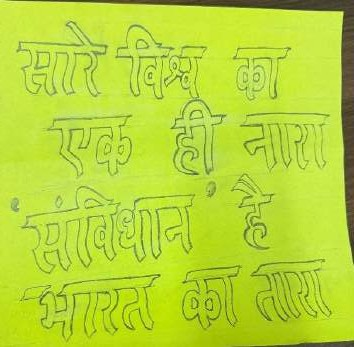 सारे विश्व का
एक ही नारा
'संविधान' है
भारत का तारा